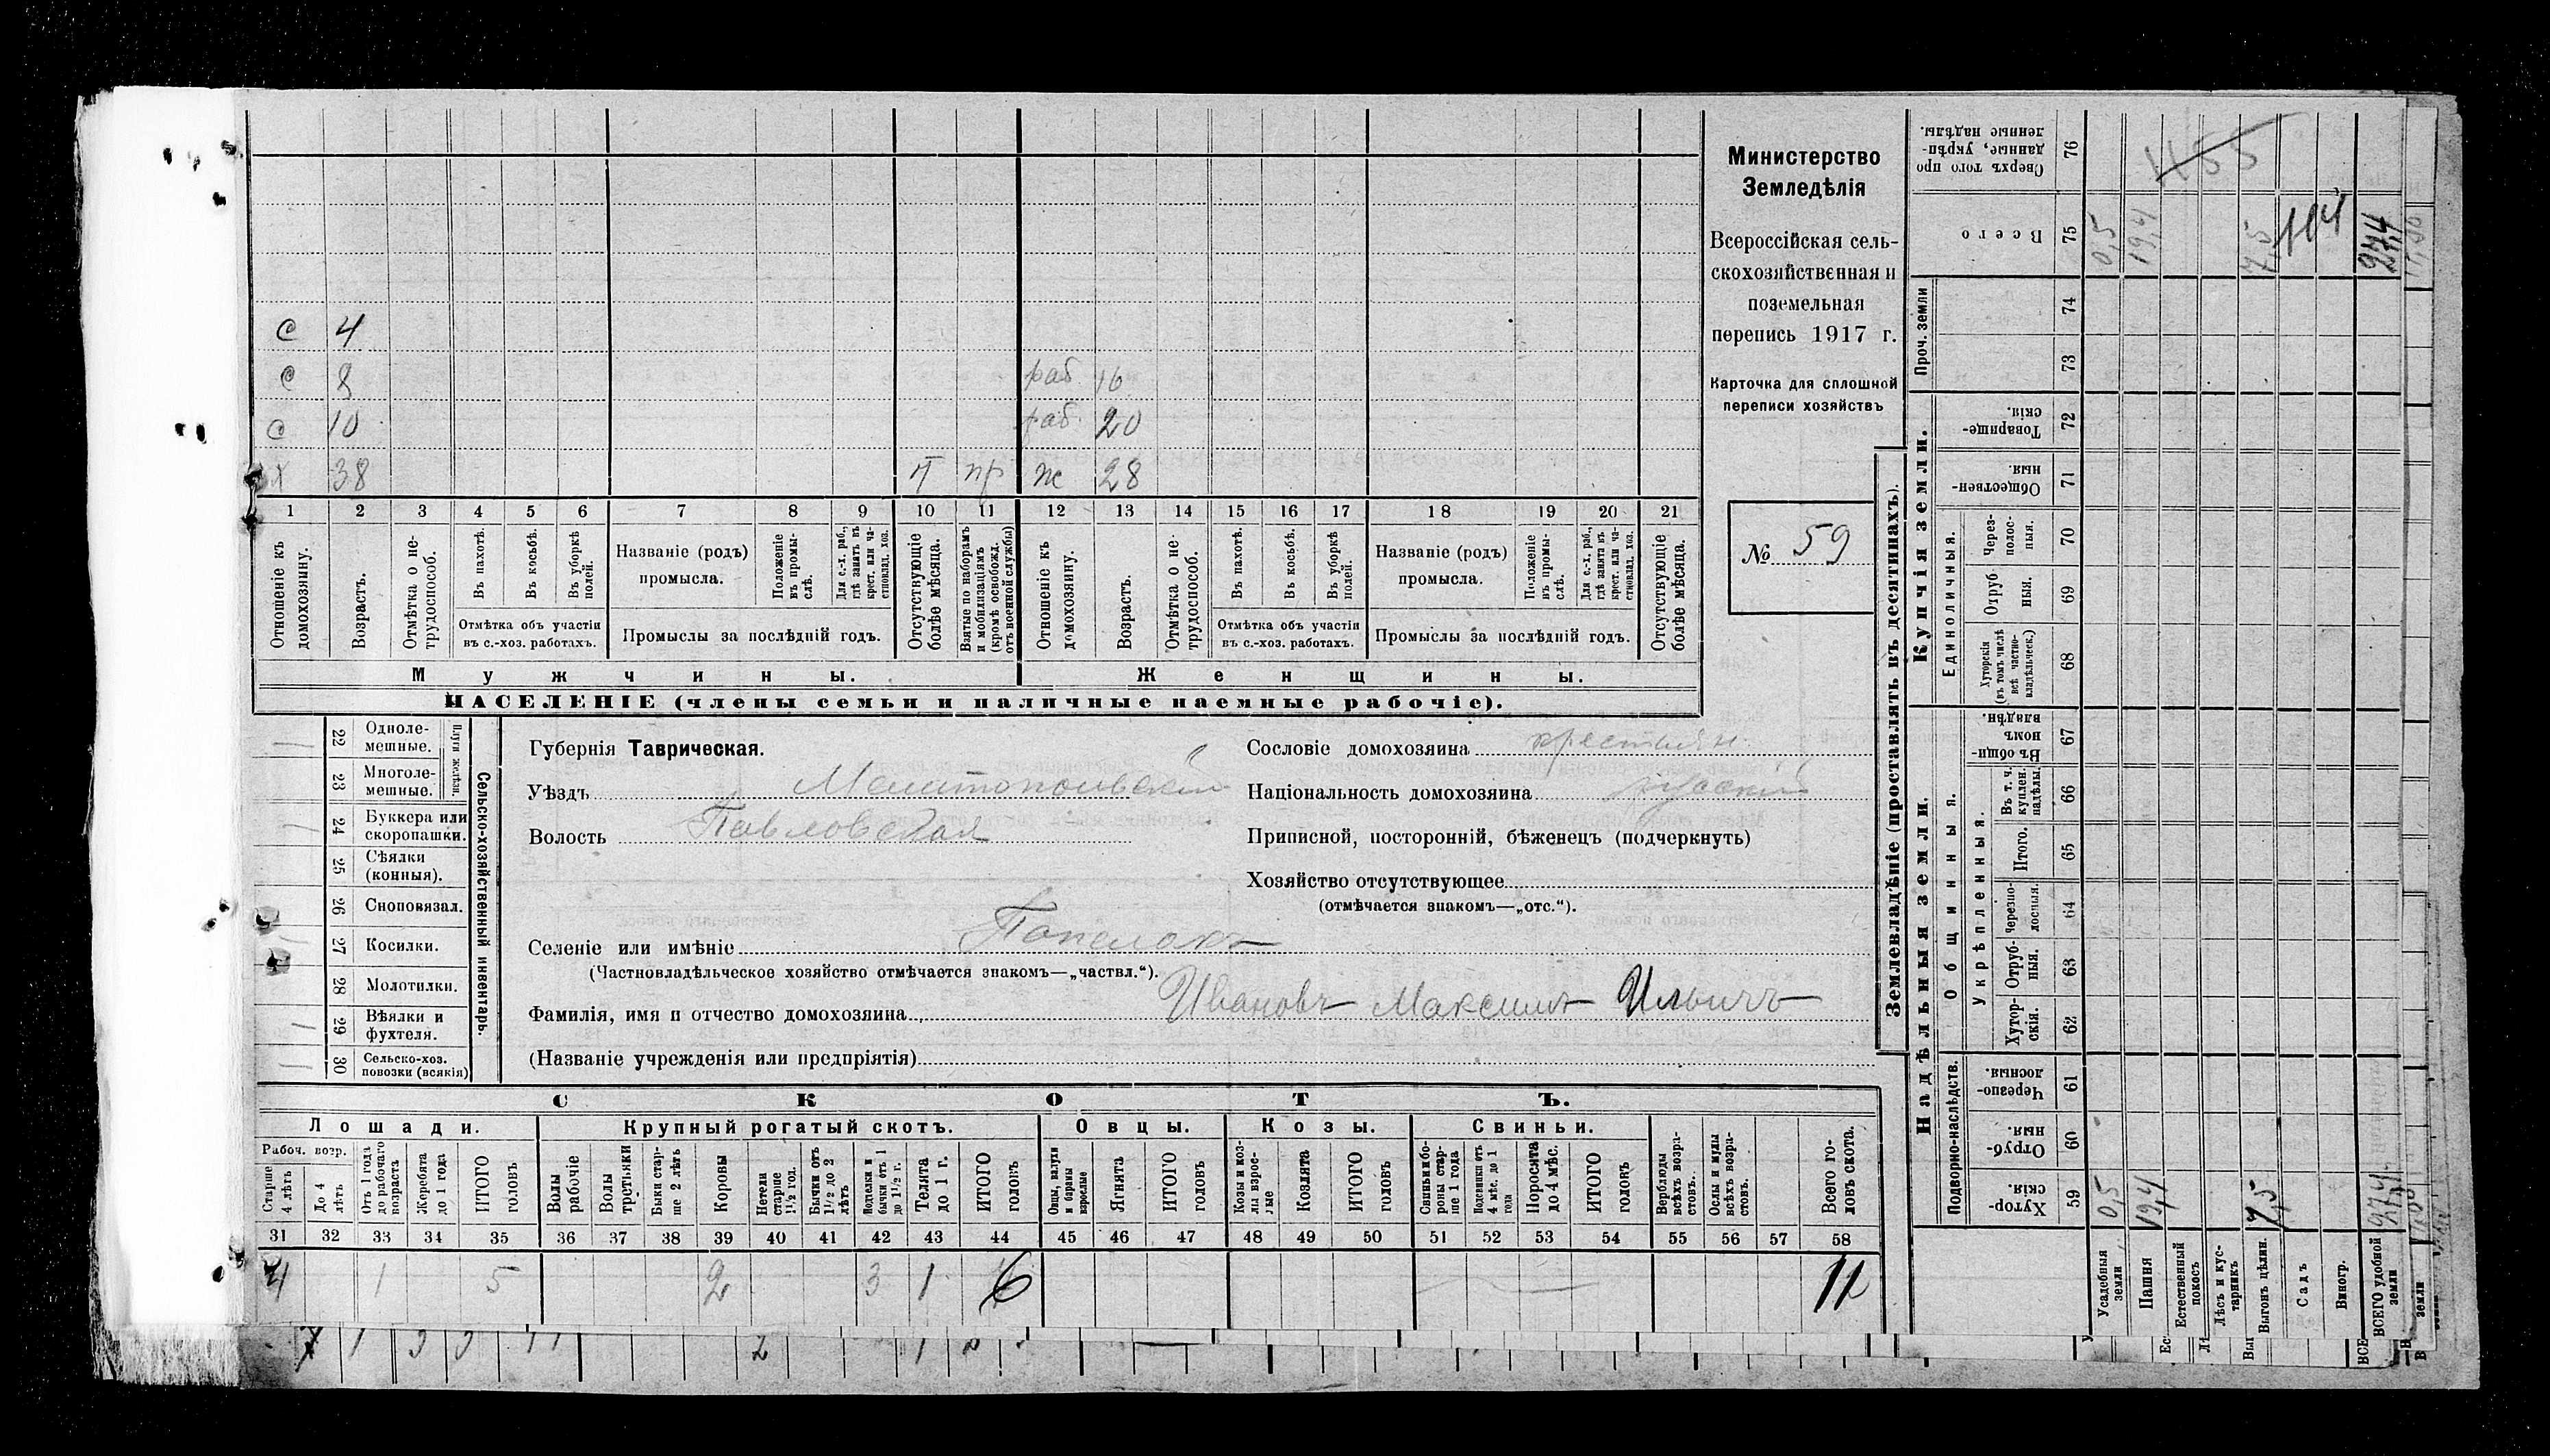 с 4
с 8 раб. 16
с 10 раб. 20
х 38 пр ж 28
1 2 3 4 5 6 7 8 9 10 11 12 13 14 15 16 17 18 19 20 21
Отношеніе къ домохозяину.
Возрастъ.
Отмѣтка о нетрудоспособ.
Въ пахотѣ.
Въ косьбѣ.
Въ уборкѣ полей.
Отмѣтка объ участіи
въ с.-хоз. работахъ.
Названіе (родъ)
промысла.
Положеніе въ промыслѣ.
Для с.-х. раб., гдѣ занятъ въ крест. или частновлад. хоз.
Промыслы за послѣдній годъ.
Отсутствующіе болѣе мѣсяца.
Взятые по наборамъ и мобилизаціямъ (кромѣ освобожд. отъ военной службы)
Отношеніе къ домохозяину.
Возрастъ.
Отмѣтка о нетрудоспособ.
Въ пахотѣ.
Въ косьбѣ.
Въ уборкѣ полей.
Отмѣтка объ участіи
въ с.-хоз. работахъ.
Названіе (родъ)
промысла.
Положеніе въ промыслѣ.
Для с.-х. раб., гдѣ занята въ крест. или частновлад. хоз.
Промыслы за послѣдній годъ.
Отсутствующіе болѣе мѣсяца.
Мужчины. Женщины.
НАСЕЛЕНІЕ (члены семьи и наличные наемные рабочіе).
Министерство
Земледѣлія
Всероссійская сель-
скохозяйственная и
поземельная
перепись 1917 г.
Карточка для сплошной
переписи хозяйствъ
№ 59
Сельско-хозяйственный инвентарь.
Плуги желѣзн.
22 Одноле-
мешные.
23 Многоле-
мешные.
24 Буккера или
скоропашки.
25 Сѣялки
(конныя).
26 Сноповязал.
27 Косилки.
28 Молотилки.
29 Вѣялки и
фухтеля.
30 Сельско-хоз.
повозки (всякія)
Губернія Таврическая.
Уѣздъ Мелитопольскій
Волость Павловская
Селеніе или имѣніе
(Частновладѣльческое хозяйство отмѣчается знакомъ—„частвл.“).
Фамилія, имя и отчество домохозяина Ивановъ Максимъ Ильичъ
(Названіе учрежденія или предпріятія)
Сословіе домохозяина крестьян.
Національность домохозяина русскій
Приписной, посторонній, бѣженецъ (подчеркнуть)
Хозяйство отсутствующее
(отмѣчается знакомъ—„отс.“).
СКОТЪ.
Лошади. Крупный рогатый скотъ. Овцы. Козы. Свиньи.
Рабоч. возр.
Старше 4 лѣтъ
До 4 лѣтъ
Отъ 1 года до рабочаго возраста
Жеребята до 1 года
ИТОГО головъ
Волы рабочіе
Волы третьяки
Быки старше 2 лѣтъ
Коровы
Нетели старше 1½ год.
Бычки отъ 1½ до 2 лѣтъ
Подтелки и бычки отъ 1 до 1½ г.
Телята до 1 г.
ИТОГО головъ
Овцы, валухи и бараны взрослые
Ягнята
ИТОГО головъ
Козы и козлы взрослые
Козлята
ИТОГО головъ
Свиньи и боровы старше 1 года
Подсвинки отъ 4 мѣс. до 1 года
Поросята до 4 мѣс.
ИТОГО головъ
Верблюды всѣхъ возрастовъ.
Ослы и мулы всѣхъ возрастовъ.
Всего головъ скота.
31 32 33 34 35 36 37 38 39 40 41 42 43 44 45 46 47 48 49 50 51 52 53 54 55 56 57 58
4 1 5 2 3 1 6 11
Землевладѣніе (проставлять въ десятинахъ).
Надѣльныя земли. Купчія земли.
Подворно-наслѣдств.
Общинныя.
Укрѣпленныя.
Единоличныя.
Проч. земли
Хуторскія. 59
Отрубныя. 60
Черезполосныя. 61
Хуторскія. 62
Отрубныя. 63
Черезполосныя. 64
Итого. 65
Въ т. ч. куплен. надѣлы. 66
Въ общинномъ владѣн. 67
Хуторскія (въ томъ числѣ всѣ частновладѣльческ.) 68
Отрубныя. 69
Черезполосныя. 70
Общественныя. 71
Товарищескія. 72
73
74
Всего 75
Сверхъ того проданные, укрѣпленные надѣлы. 76
Усадебныя земли 0,5 0,5
Пашня 19,4 19,4
Естественный покосъ
Лѣсъ и кустарникъ
Выгонъ цѣлин. 7,5 7,5
Садъ
Виногр.
ВСЕГО удобной земли 27,4 27,4